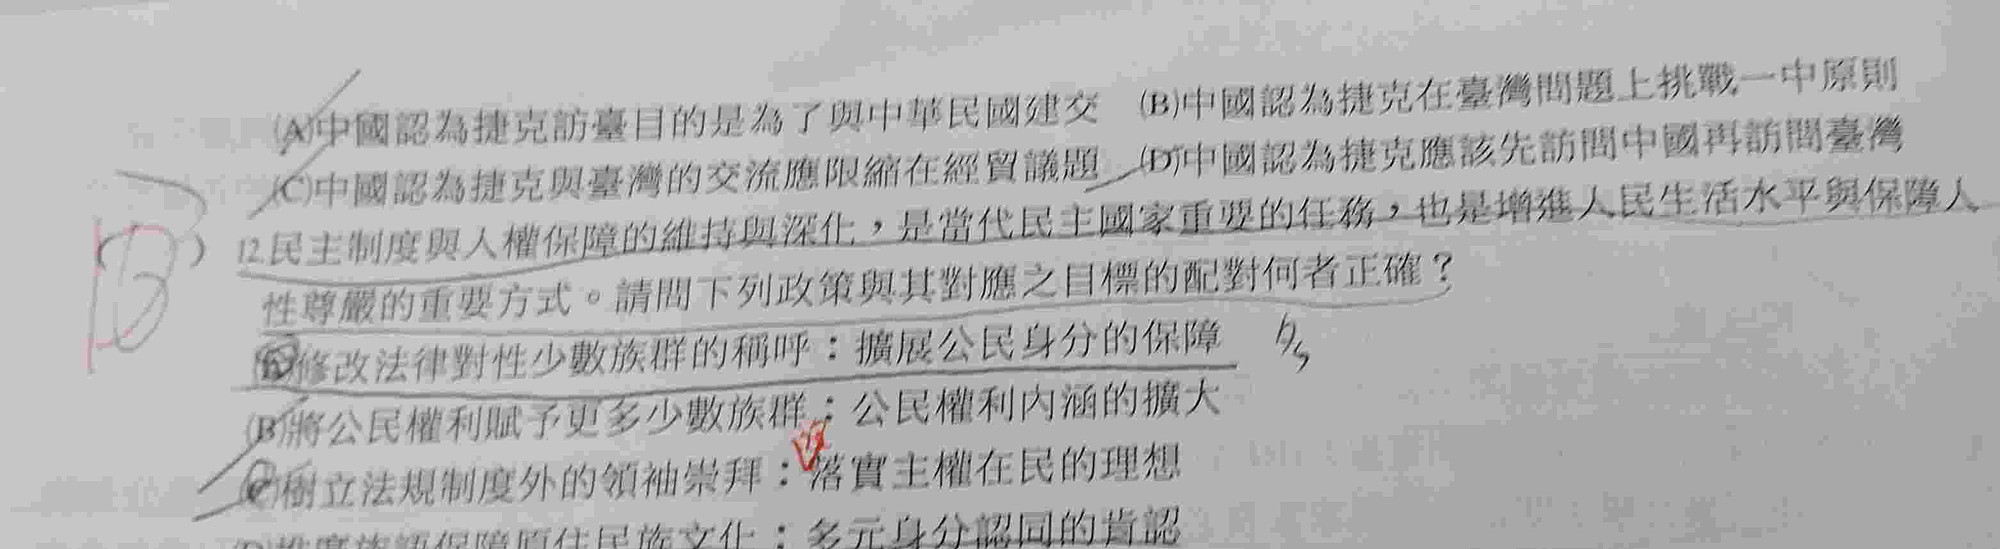 (A)中國認為捷克訪臺目的是為了與中華民國建交 (B)中國認為捷克在臺灣問題上挑戰一中原則
(C)中國認為捷克與臺灣的交流應限縮在經貿議題 (D)中國認為捷克應該先訪問中國再訪問臺灣
( )12.民主制度與人權保障的維持與深化，是當代民主國家重要的任務，也是增進人民生活水平與保障人
性尊嚴的重要方式。請問下列政策與其對應之目標的配對何者正確？
(A)修改法律對性少數族群的稱呼：擴展公民身分的保障
(B)將公民權利賦予更多少數族群：公民權利內涵的擴大
(C)樹立法規制度外的領袖崇拜：落實主權在民的理想
(D)推廣族語保障原住民族文化：多元身分認同的肯認